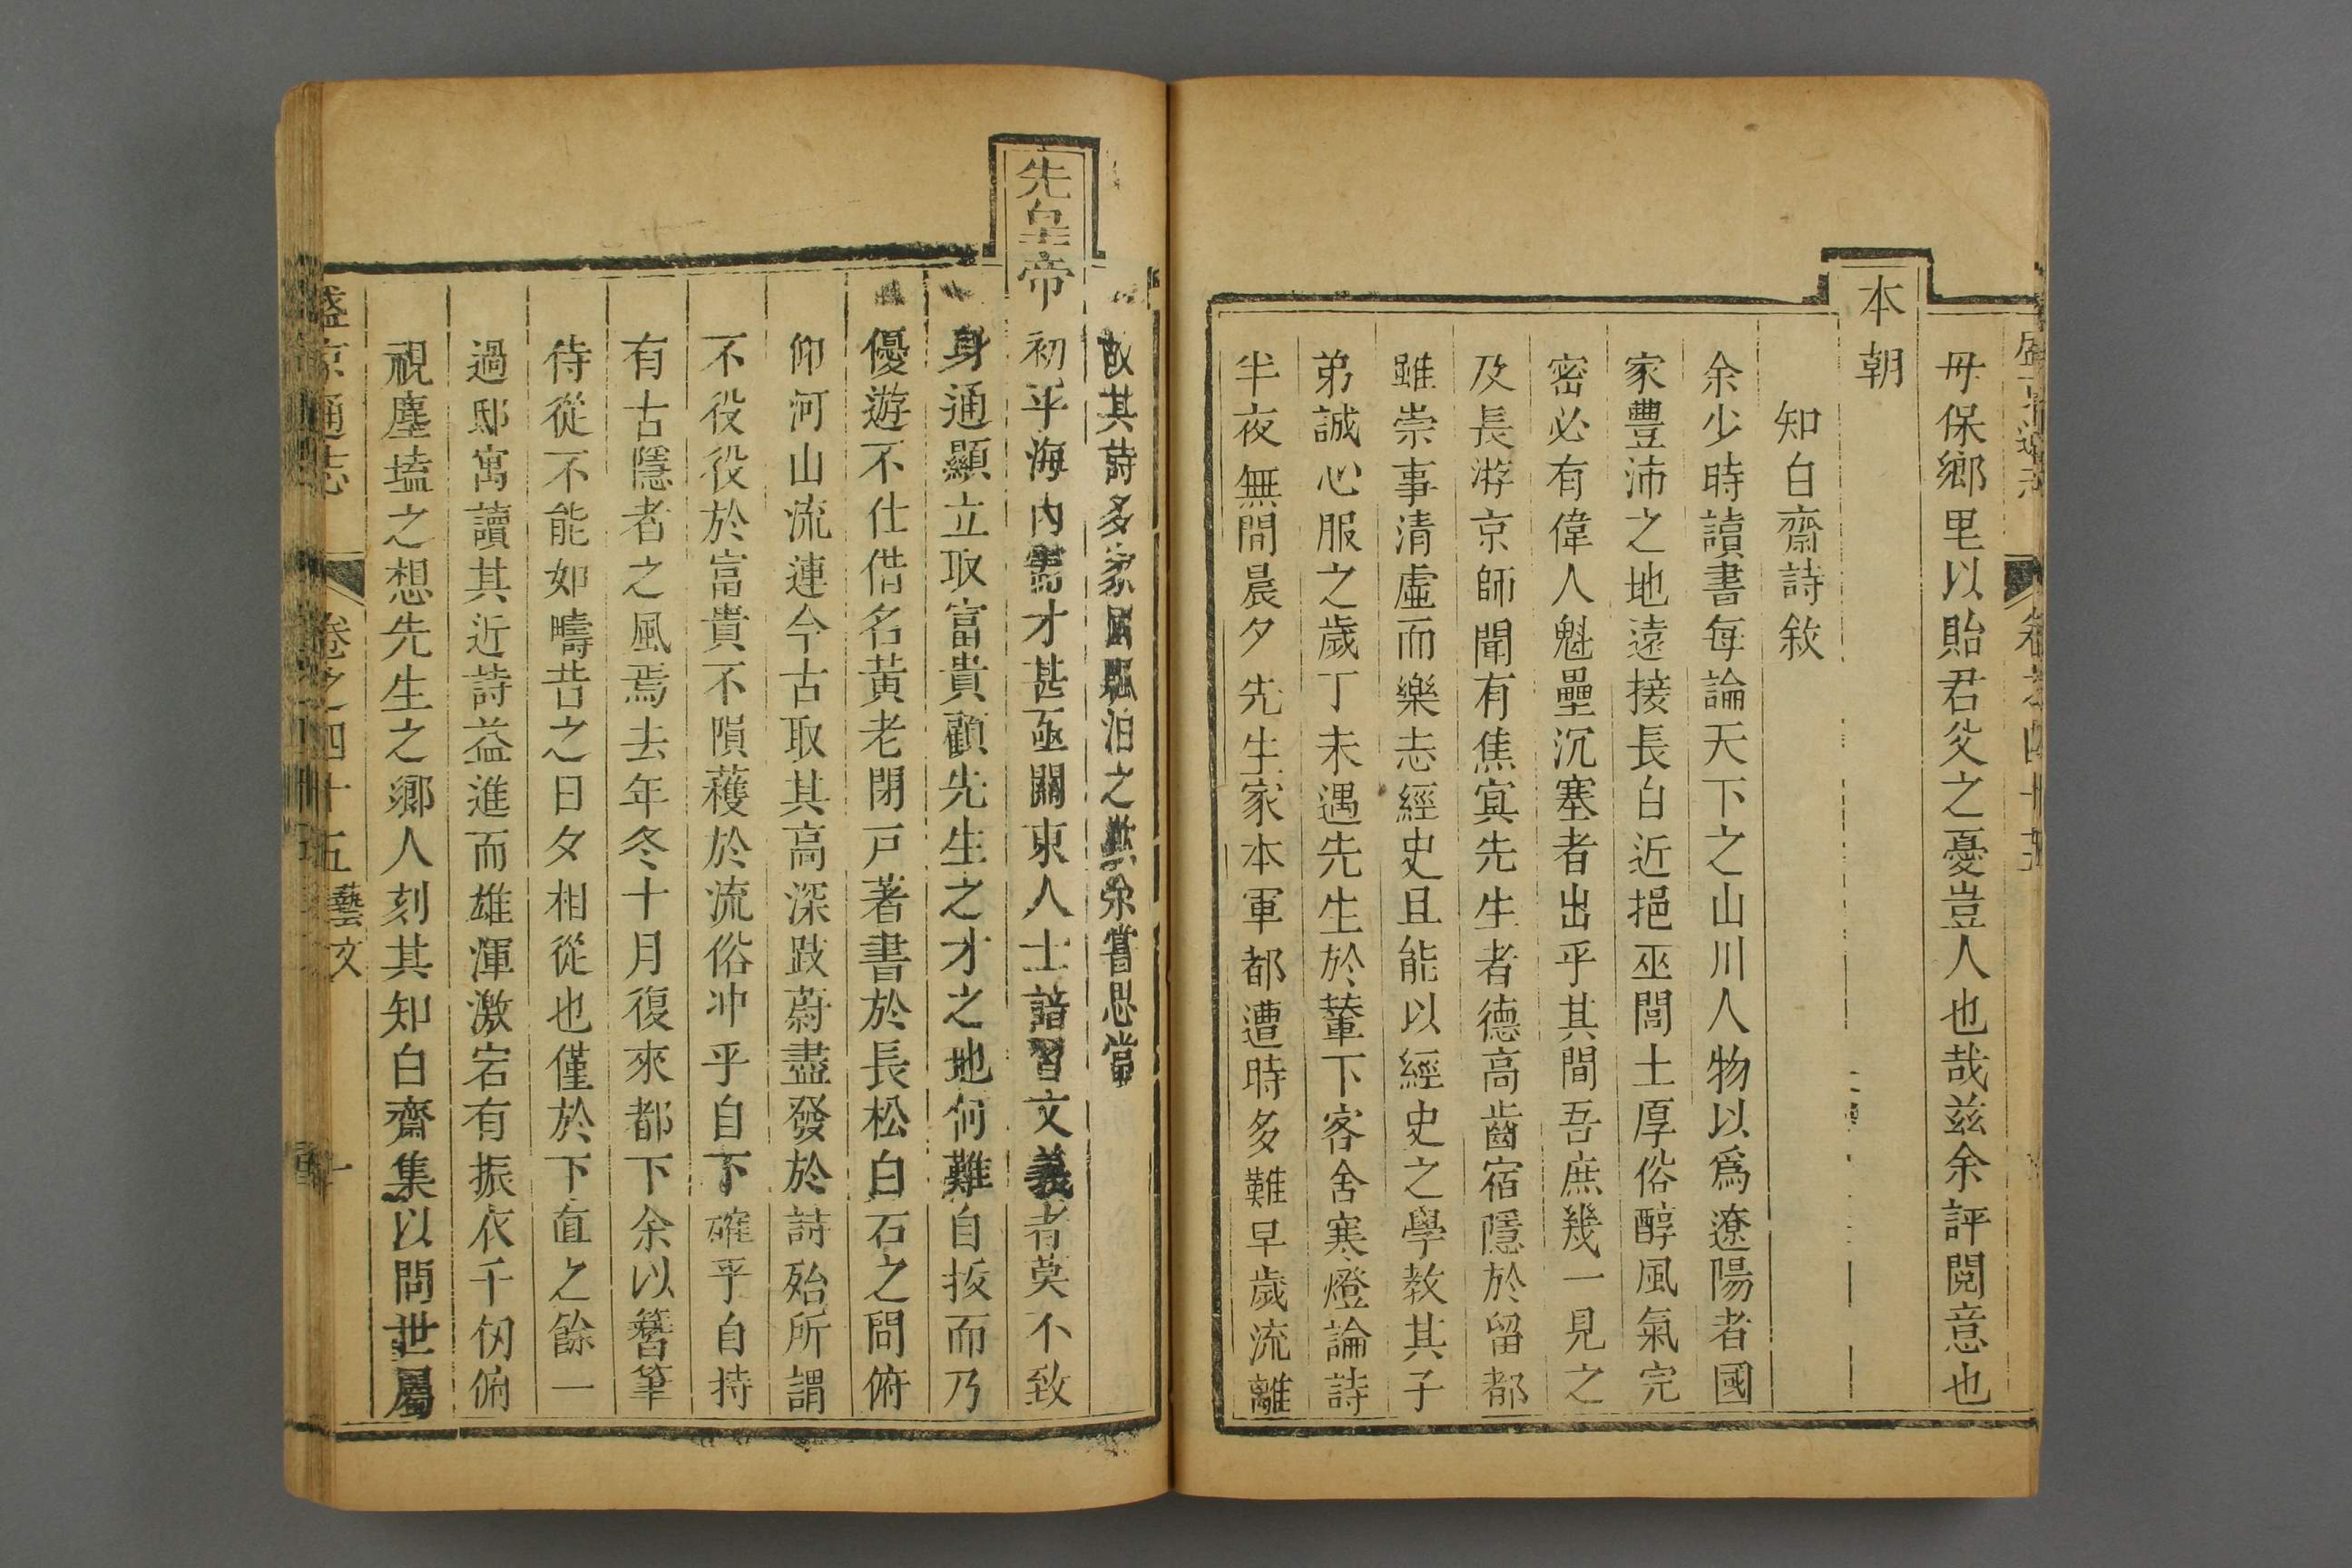 毋保鄉里以貽君父之憂豈人也哉茲余評閱意也
本朝
知白齋詩敘
余少時讀書每論天下之山川人物以爲遼陽者國
家豐沛之地遠接長白近挹巫閭土厚俗醇風氣完
密必有偉人魁壘沉塞者出乎其間吾庶幾一見之
及長游京師聞有焦㝠先生者德高齒宿隱於留都
雖崇事清虛而樂志經史且能以經史之學教其子
弟誠心服之歲丁未遇先生於輦下客舍寒燈論詩
半夜無間晨夕先生家本軍都遭時多難早歲流離
故其詩多家國飄泊之
余嘗思當
先皇帝初平海內需才甚亟關東人士諳習文義者莫不致
身通顯立取富貴顧先生之才之地何難自拔而乃
優遊不仕借名黃老閉戸著書於長松白石之間俯
仰河山流連今古取其高深跂蔚盡發於詩殆所謂
不役役於富貴不隕蒦於流俗冲乎自下確乎自持
有古隱者之風焉去年冬十月復來都下余以簪筆
待從不能如疇昔之日夕相從也僅於下直之餘一
過邸寓讀其近詩益進而雄渾激宕有振衣千仞俯
視塵壒之想先生之鄉人刻其知白齋集以問世屬
盛京通志 卷之四十五 藝文